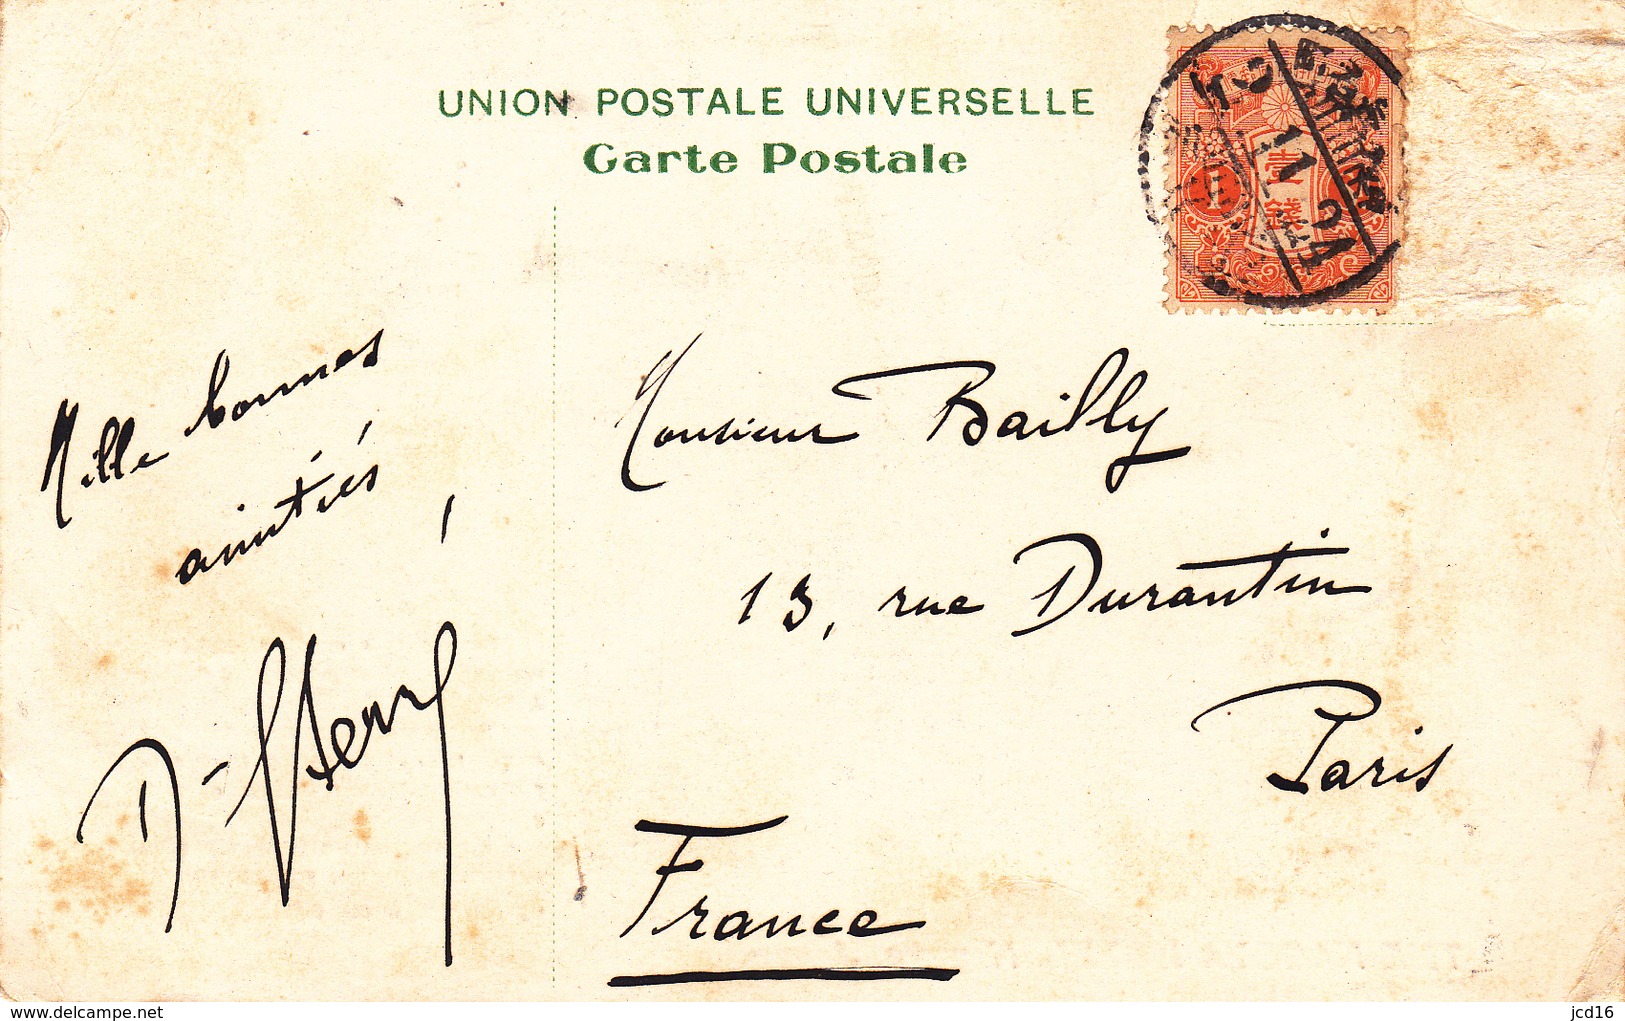 UNION POSTALE UNIVERSELLE
Carte Postale
壹
錢
1
11
24
Mille bonnes
amitiés,
Monsieur Bailly
13, rue Durantin
Paris
France
www.delcampe.net
jcd16